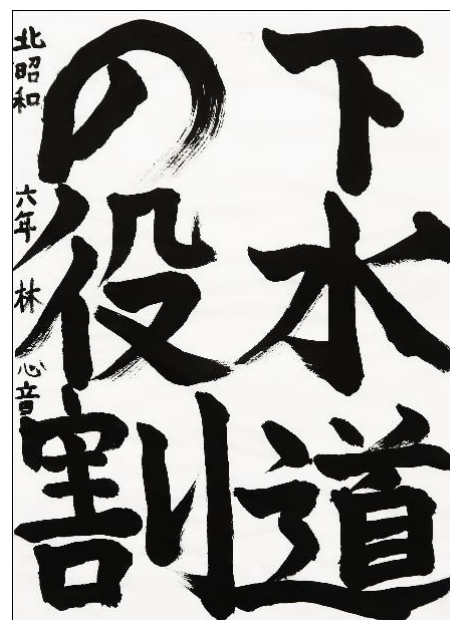 下水道
の役割
北昭和 六年 林 心音